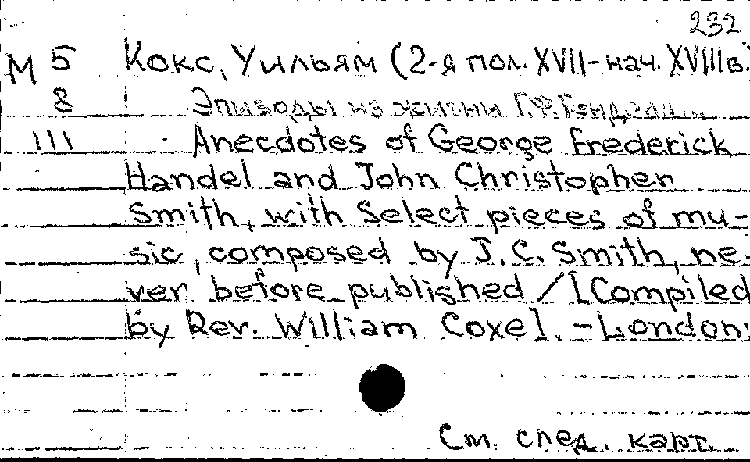 232
М 5 Кокс, Уильям (2-я пол. XVII-нач. XVIIIв.
8 Эпизоды из жизни Г.Ф. Генделя...
111 Anecdotes of George Frederick
Handel and John Christopher
Smith, with Select pieces of mu-
sic, composed by J.C. Smith, ne-
ver before published / [Compiled
by Rev. William Coxe]. - London:
См. след. карт.